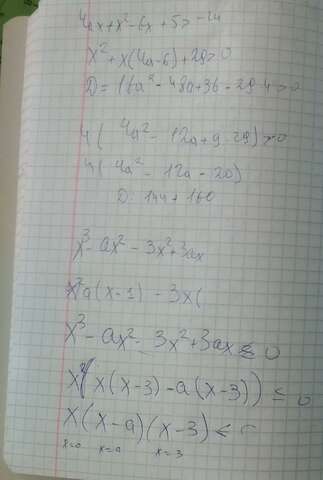 4ax+x²-6x+5>-24
x²+x(4a-6)+29>0
D=16a²-48a+36-29·4>0
4(4a²-12a+9-29)>0
4(4a²-12a-20)
D=144+160
x³-ax²-3x²+3ax
x²a(x-1)-3x(
x³-ax²-3x²+3ax≤0
x(x(x-3)-a(x-3))≤0
x(x-a)(x-3)<0
x=0 x=a x=3